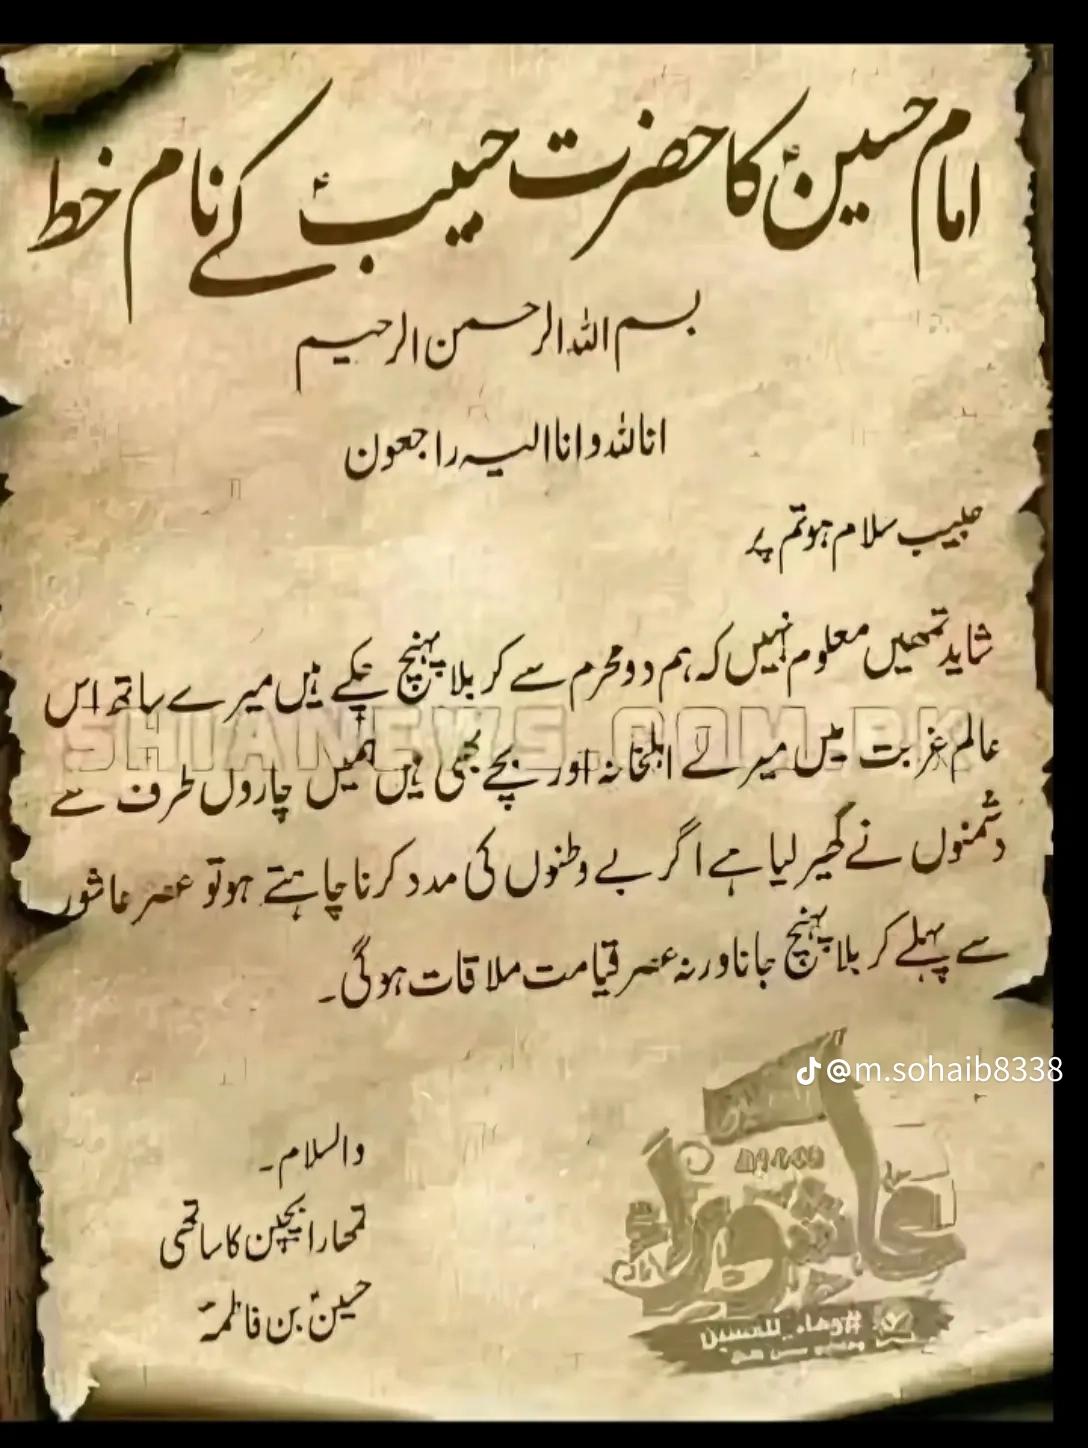 امام حسینؑ کا حضرت حبیبؑ کے نام خط
بسم اللہ الرحمن الرحیم
انا للہ وانا الیہ راجعون
حبیب سلام ہو تم پر
شاید تمھیں معلوم نہیں کہ ہم دو محرم سے کربلا پہنچ چکے ہیں میرے ساتھ اس
عالم غربت میں میرے اہلخانہ اور بچے بھی ہیں ہمیں چاروں طرف سے
SHIANEWS.COM.PK
دشمنوں نے گھیر لیا ہے اگر بے وطنوں کی مدد کرنا چاہتے ہو تو عصر عاشور
سے پہلے کربلا پہنچ جانا ورنہ عصر قیامت ملاقات ہوگی۔
@m.sohaib8338
والسلام۔
تمھارا بچپن کا ساتھی
حسینؑ بن فاطمہؑ
عاشوراء